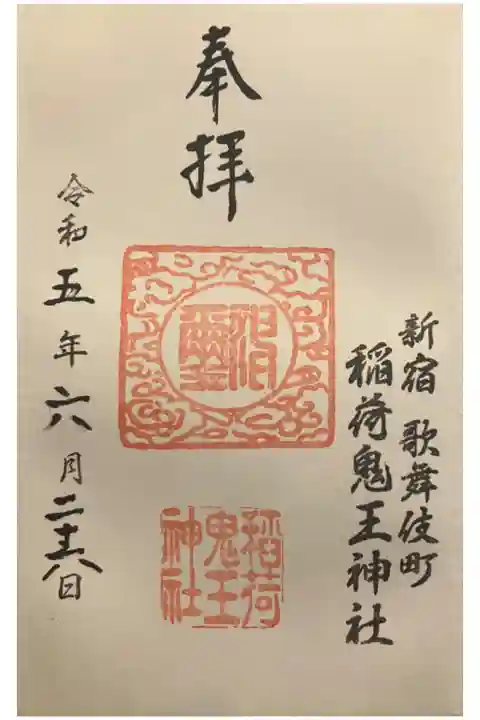 奉拝
新宿 歌舞伎町
稲荷鬼王神社
稲荷
鬼王
神社
令和五年六月二十八日